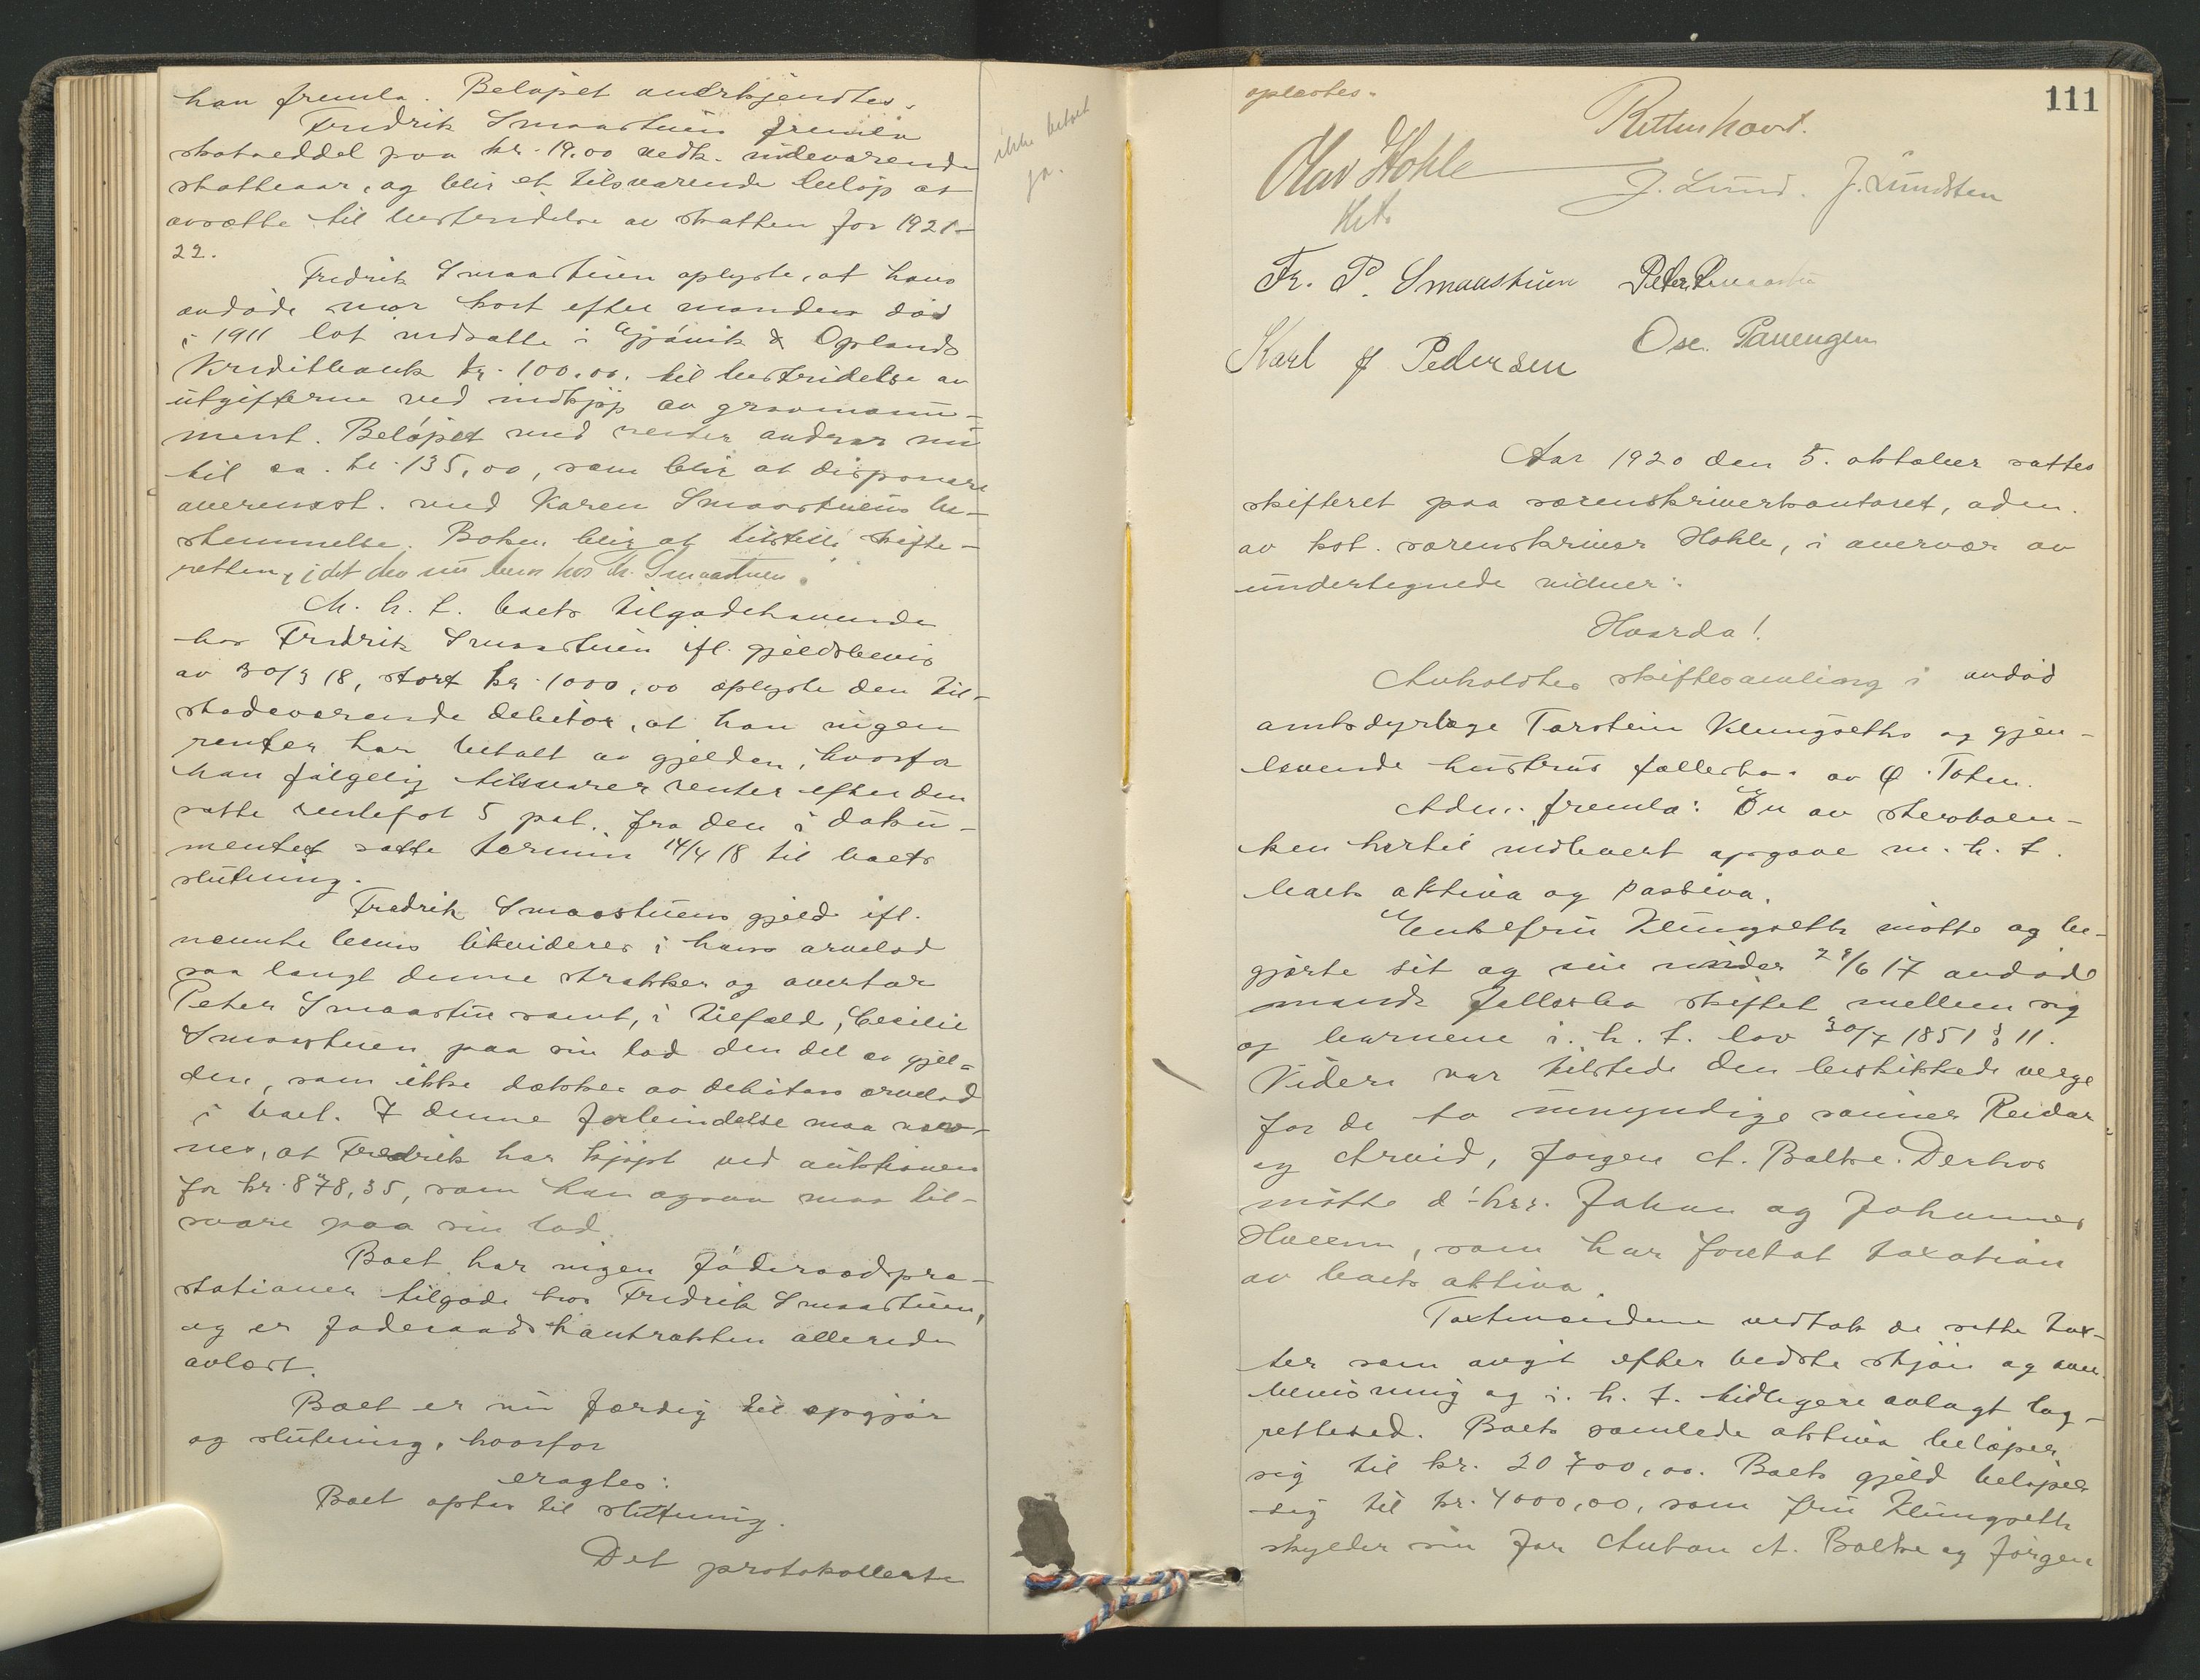 han fremla. Beløpet anerkjendtes.
Fredrik Smaastuen fremla
skatseddel paa kr. 19,00 vedk. indeværende
skatteaar, og blir et tilsvarende beløp at
avsætte til bestridelse av skatten for 1921-
22.
Fredrik Smaastuen oplyste, at hans
avdøde mor kort efter mandens død
i 1911 lot indsætte i Gjøvik & Oplands
Kreditbank kr. 100,00 til bestridelse av
utgifterne ved indkjøp av gravmonu-
ment. Beløpet med renter andrar nu
til ca. kr. 135,00, som blir at disponere
overensst. med Karen Smaastuens be-
stemmelse. Boken blir at tilstille skifte-
retten, idet den nu bero hos Fr. Smaastuen.
M. h. t. boets tilgodehavende
hos Fredrik Smaastuen ifl. gjeldsbevis
av 30/3 18, stort kr. 1000,00 oplyste den til-
stedeværende debitor, at han ingen
renter har betalt av gjelden, hvorfor
han følgelig tilsvarer renter efter den
satte rentefot 5 pct. fra den i doku-
mentet satte termin 14/4 18 til boets
slutning.
Fredrik Smaastuens gjeld ifl.
nævnte bevis likvideres i hans arvelod
saa langt denne strækker og overtar
Peter Smaastuen samt, i tilfælde, Cecilie
Smaastuen paa sin lod den del av gjel-
den, som ikke dækkes av debitors arvelod
i boet. I denne forbindelse maa næv-
nes, at Fredrik har kjøpt ved auktionen
for kr. 878,35, som han ogsaa maa til-
svare paa sin lod.
Boet har ingen føderaadspræ-
stationer tilgode hos Fredrik Smaastuen,
og er føderaadskontrakten allerede
avlæst.
Boet er nu færdig til opgjør
og slutning, hvorfor
eragtes:
Boet optas til slutning.
Det protokollerte
ikke betalt
ja.
111
oplæstes.
Retten hævet.
Olav Hohle
kst.
J. Lund. J. Lundsten
Fr. P. Smaastuen Peter Smaastu
Karl J Pedersen Ose. Pauengen
Aar 1920 den 5. oktober sattes
skifteret paa sorenskriverkontoret, adm.
av kst. sorenskriver Hohle, i overvær av
undertegnede vidner:
Hvorda!
Anholdtes skiftesamling i avdød
amtsdyrlæge Torstein Klungseths og gjen-
levende hustrus fællesbo av Ø. Toten.
Adm. fremla: En av stervboen-
ken hertil indlevert opgave m. h. t.
boets aktiva og passiva.
Enkefru Klungseth møtte og be-
gjærte sit og sin under 29/6 17 avdøde
mands fællesbo skiftet mellem sig
og børnene i. h. t. lov 30/7 1851 § 11.
Videre var tilstede den beskikkede verge
for de to umyndige sønner Reidar
og Arvid, Jørgen A. Balke. Derhos
møtte d'hrr. Johan og Johannes
Hveem, som har foretat taxation
av boets aktiva.
Taxtmændene vedtok de satte tax-
ter som avgit efter bedste skjøn og over-
bevisning og i. h. t. tidligere avlagt lag-
retteed. Boets samlede aktiva beløper
sig til kr. 20 700,00. Boets gjeld beløper
sig til kr. 4000,00, som fru Klungseth
skylder sin far Anton A. Balke og Jørgen